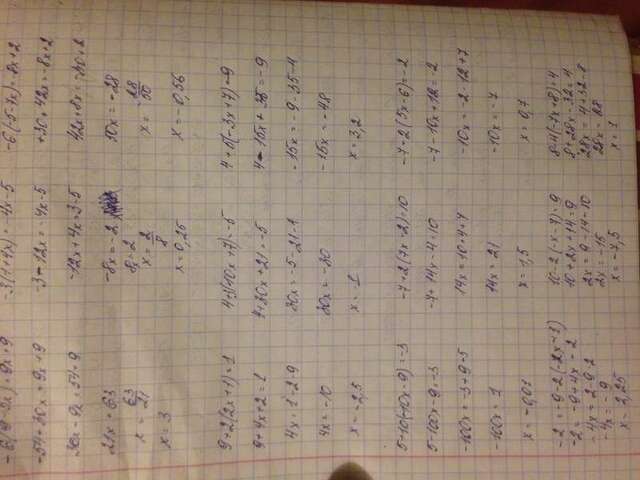 -6(9-5x)=9x+9
-54+30x=9x+9
30x-9x=54+9
21x=63
x=63/21
x=3
-3(1+4x)=-4x-5
-3-12x=-4x-5
-12x+4x=3-5
-8x=-2
8x=2
x=2/8
x=0,25
-6(-5-7x)=-8x+2
+30+42x=-8x+2
42x+8x=-30+2
50x=-28
x=-28/50
x=-0,56
9+2(2x+1)=1
9+4x+2=1
4x=1-2-9
4x=-10
x=-2,5
4+3(10x+7)=-5
4+30x+21=-5
30x=-5-21-4
30x=-30
x=-1
4+5(-3x+7)=-9
4-15x+35=-9
-15x=-9-35-4
-15x=-48
x=3,2
5+10(-10x-9)=-3
5-100x-9=-3
-100x=-3+9-5
-100x=1
x=-0,01
-7+2(7x-2)=10
-7+14x-4=10
14x=10+4+7
14x=21
x=1,5
-7-2(5x-6)=-2
-7-10x+12=-2
-10x=-2-12+7
-10x=-7
x=0,7
-2=-9-2(-2x+1)
-2=-9+4x-2
-4x=2-9-2
-4x=-9
x=2,25
10-2(-x-7)=9
10+2x+14=9
2x=9-14-10
2x=-15
x=-7,5
8-4(-7x+8)=4
8+28x-32=4
28x=4+32-8
28x=28
x=1